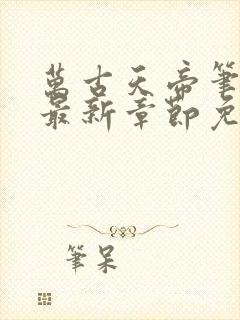 萬古天帝筆
最新章節免
筆呆